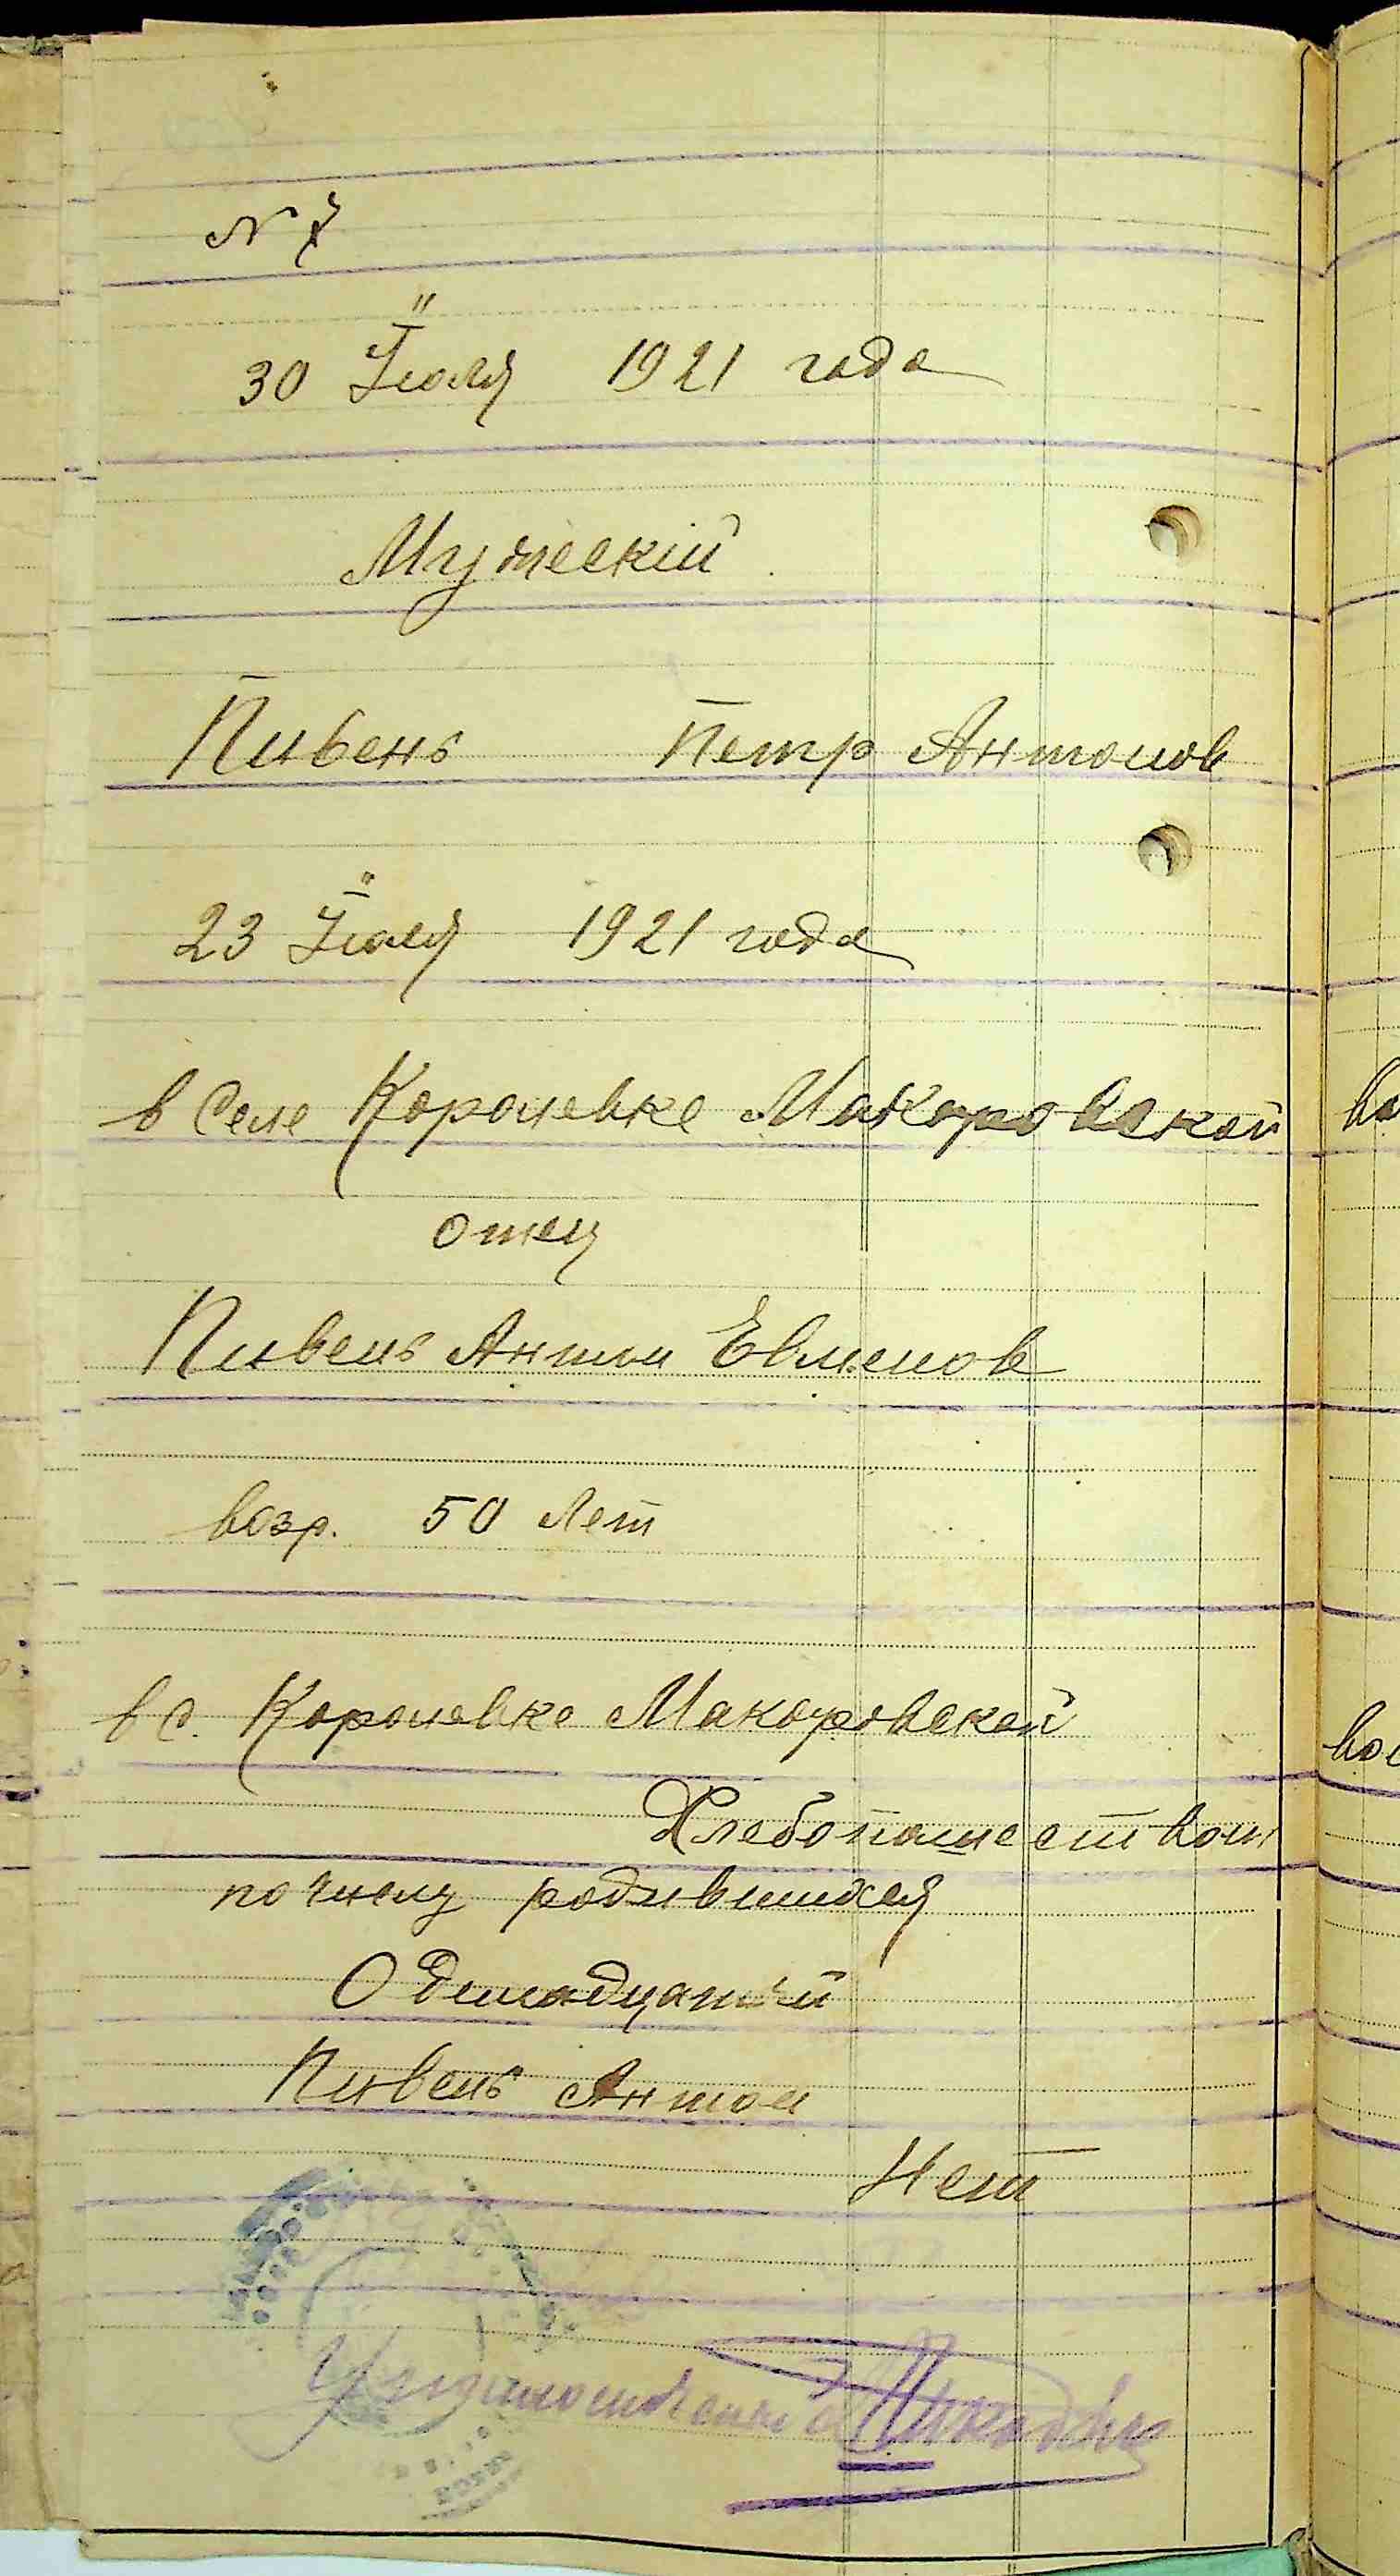 N 7
30 Іюля 1921 года
Мужескій
Пивень Петр Антонов
23 Іюля 1921 года
в Селе Королевке Макаровской
отец
Пивень Антон Евменов
возр. 50 Лет
в с. Королевке Макаровской
Хлебопашеством
по числу родившихся
Одинадцатий
Пивень Антон
Нет